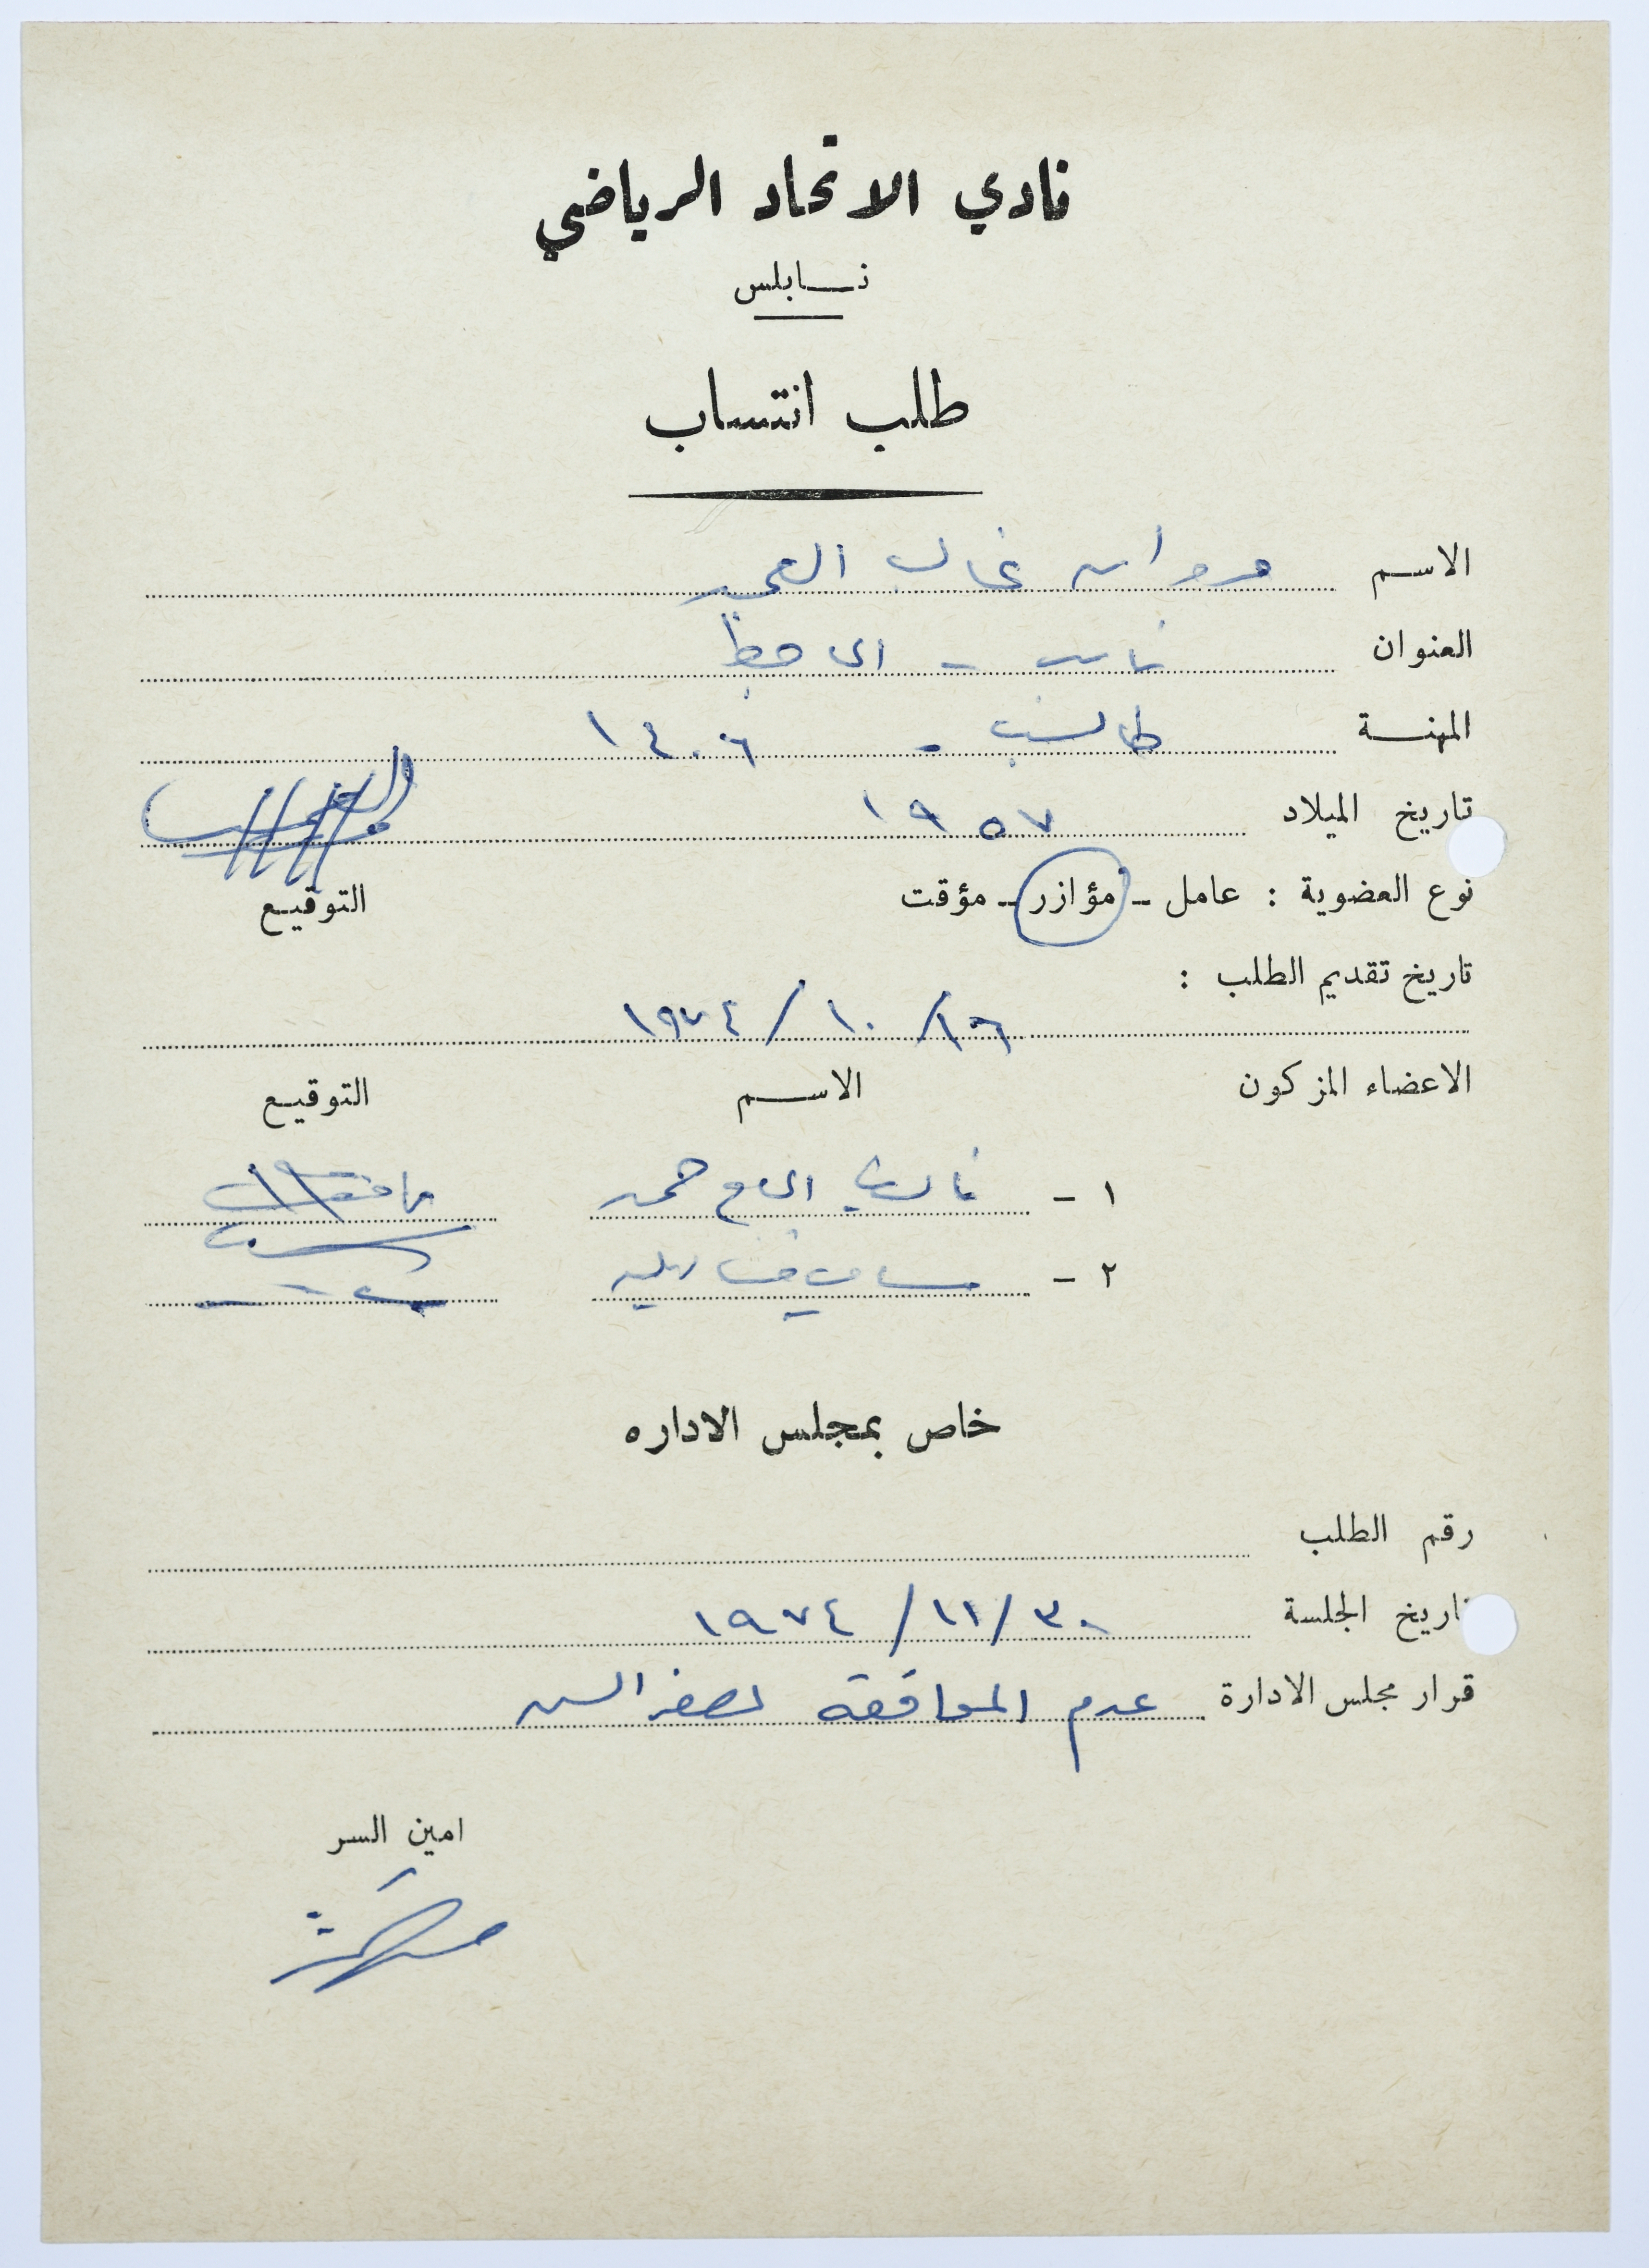 نادي الاتحاد الرياضي
نابلس
طلب انتساب
الاسم مروان غالب
العنوان نابلس -
المهنة طالب - ١٤٠٦
تاريخ الميلاد ١٩٥٧
نوع العضوية : عامل - مؤازر - مؤقت التوقيع
تاريخ تقديم الطلب :
١٦/ ١٠ / ١٩٧٤
الاعضاء المزكون الاسم التوقيع
١ -
٢ - سامي
خاص بمجلس الاداره
رقم الطلب
تاريخ الجلسة ٣٠/ ١١ / ١٩٧٤
قرار مجلس الادارة عدم الموافقة لصغر السن
امين السر